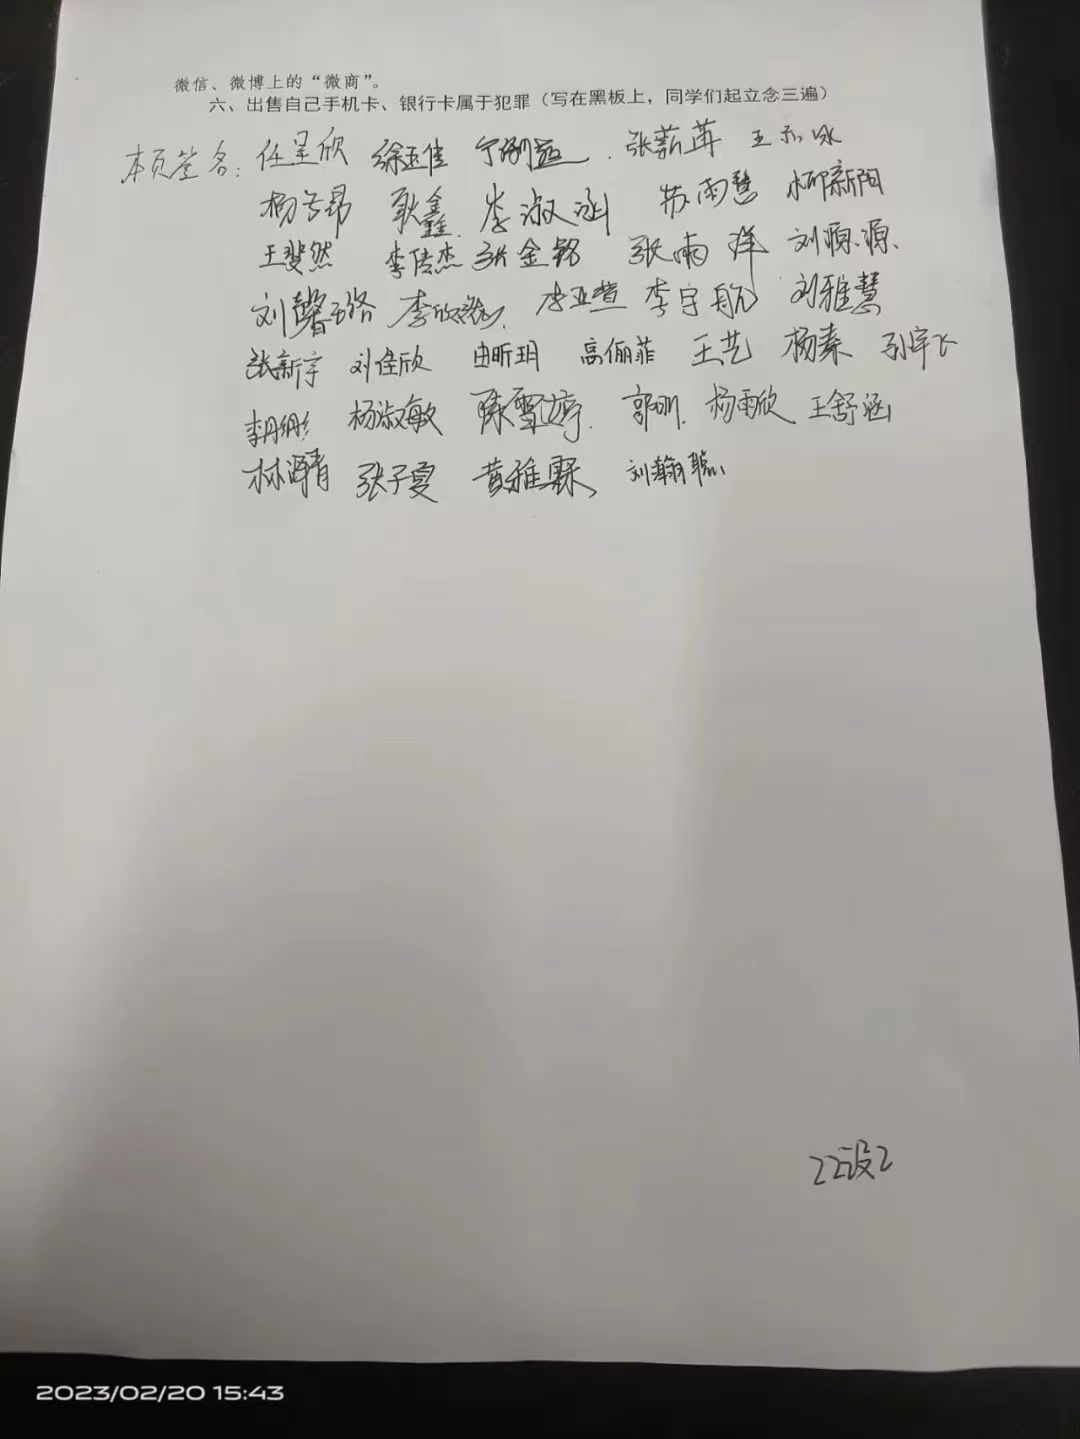 微信、微博上的“微商”。
六、出售自己手机卡、银行卡属于犯罪（写在黑板上，同学们起立念三遍）
本页签名：任星欣 徐玉佳 张薪苒 王
杨 昂 耿鑫 李淑涵 苏雨慧 柳新阳
王斐然 李传杰 张金铭 张雨洋 刘源源
刘馨璐 李欣 李亚萱 李宇航 刘雅慧
张新宇 刘佳欣 由昕玥 高俪菲 王艺 杨素 孙宇飞
李 杨淑敏 陈雪婷 郭明 杨雨欣 王舒涵
林清 张子夏 黄雅霖 刘瀚聪
22设2
2023/02/20 15:43